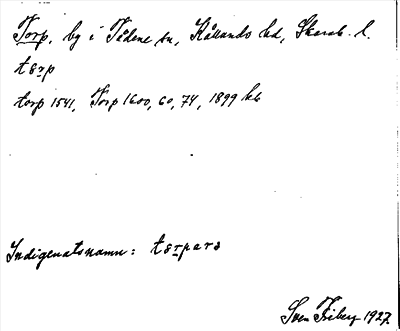 Torp, by i Tådene sn, Kållands hd, Skarab. l.
tɞrp
torp 1541, Torp 1600, 60, 74, 1899 kb
Indigenatsnamn: tɞrpara
Sven Friberg 1927.